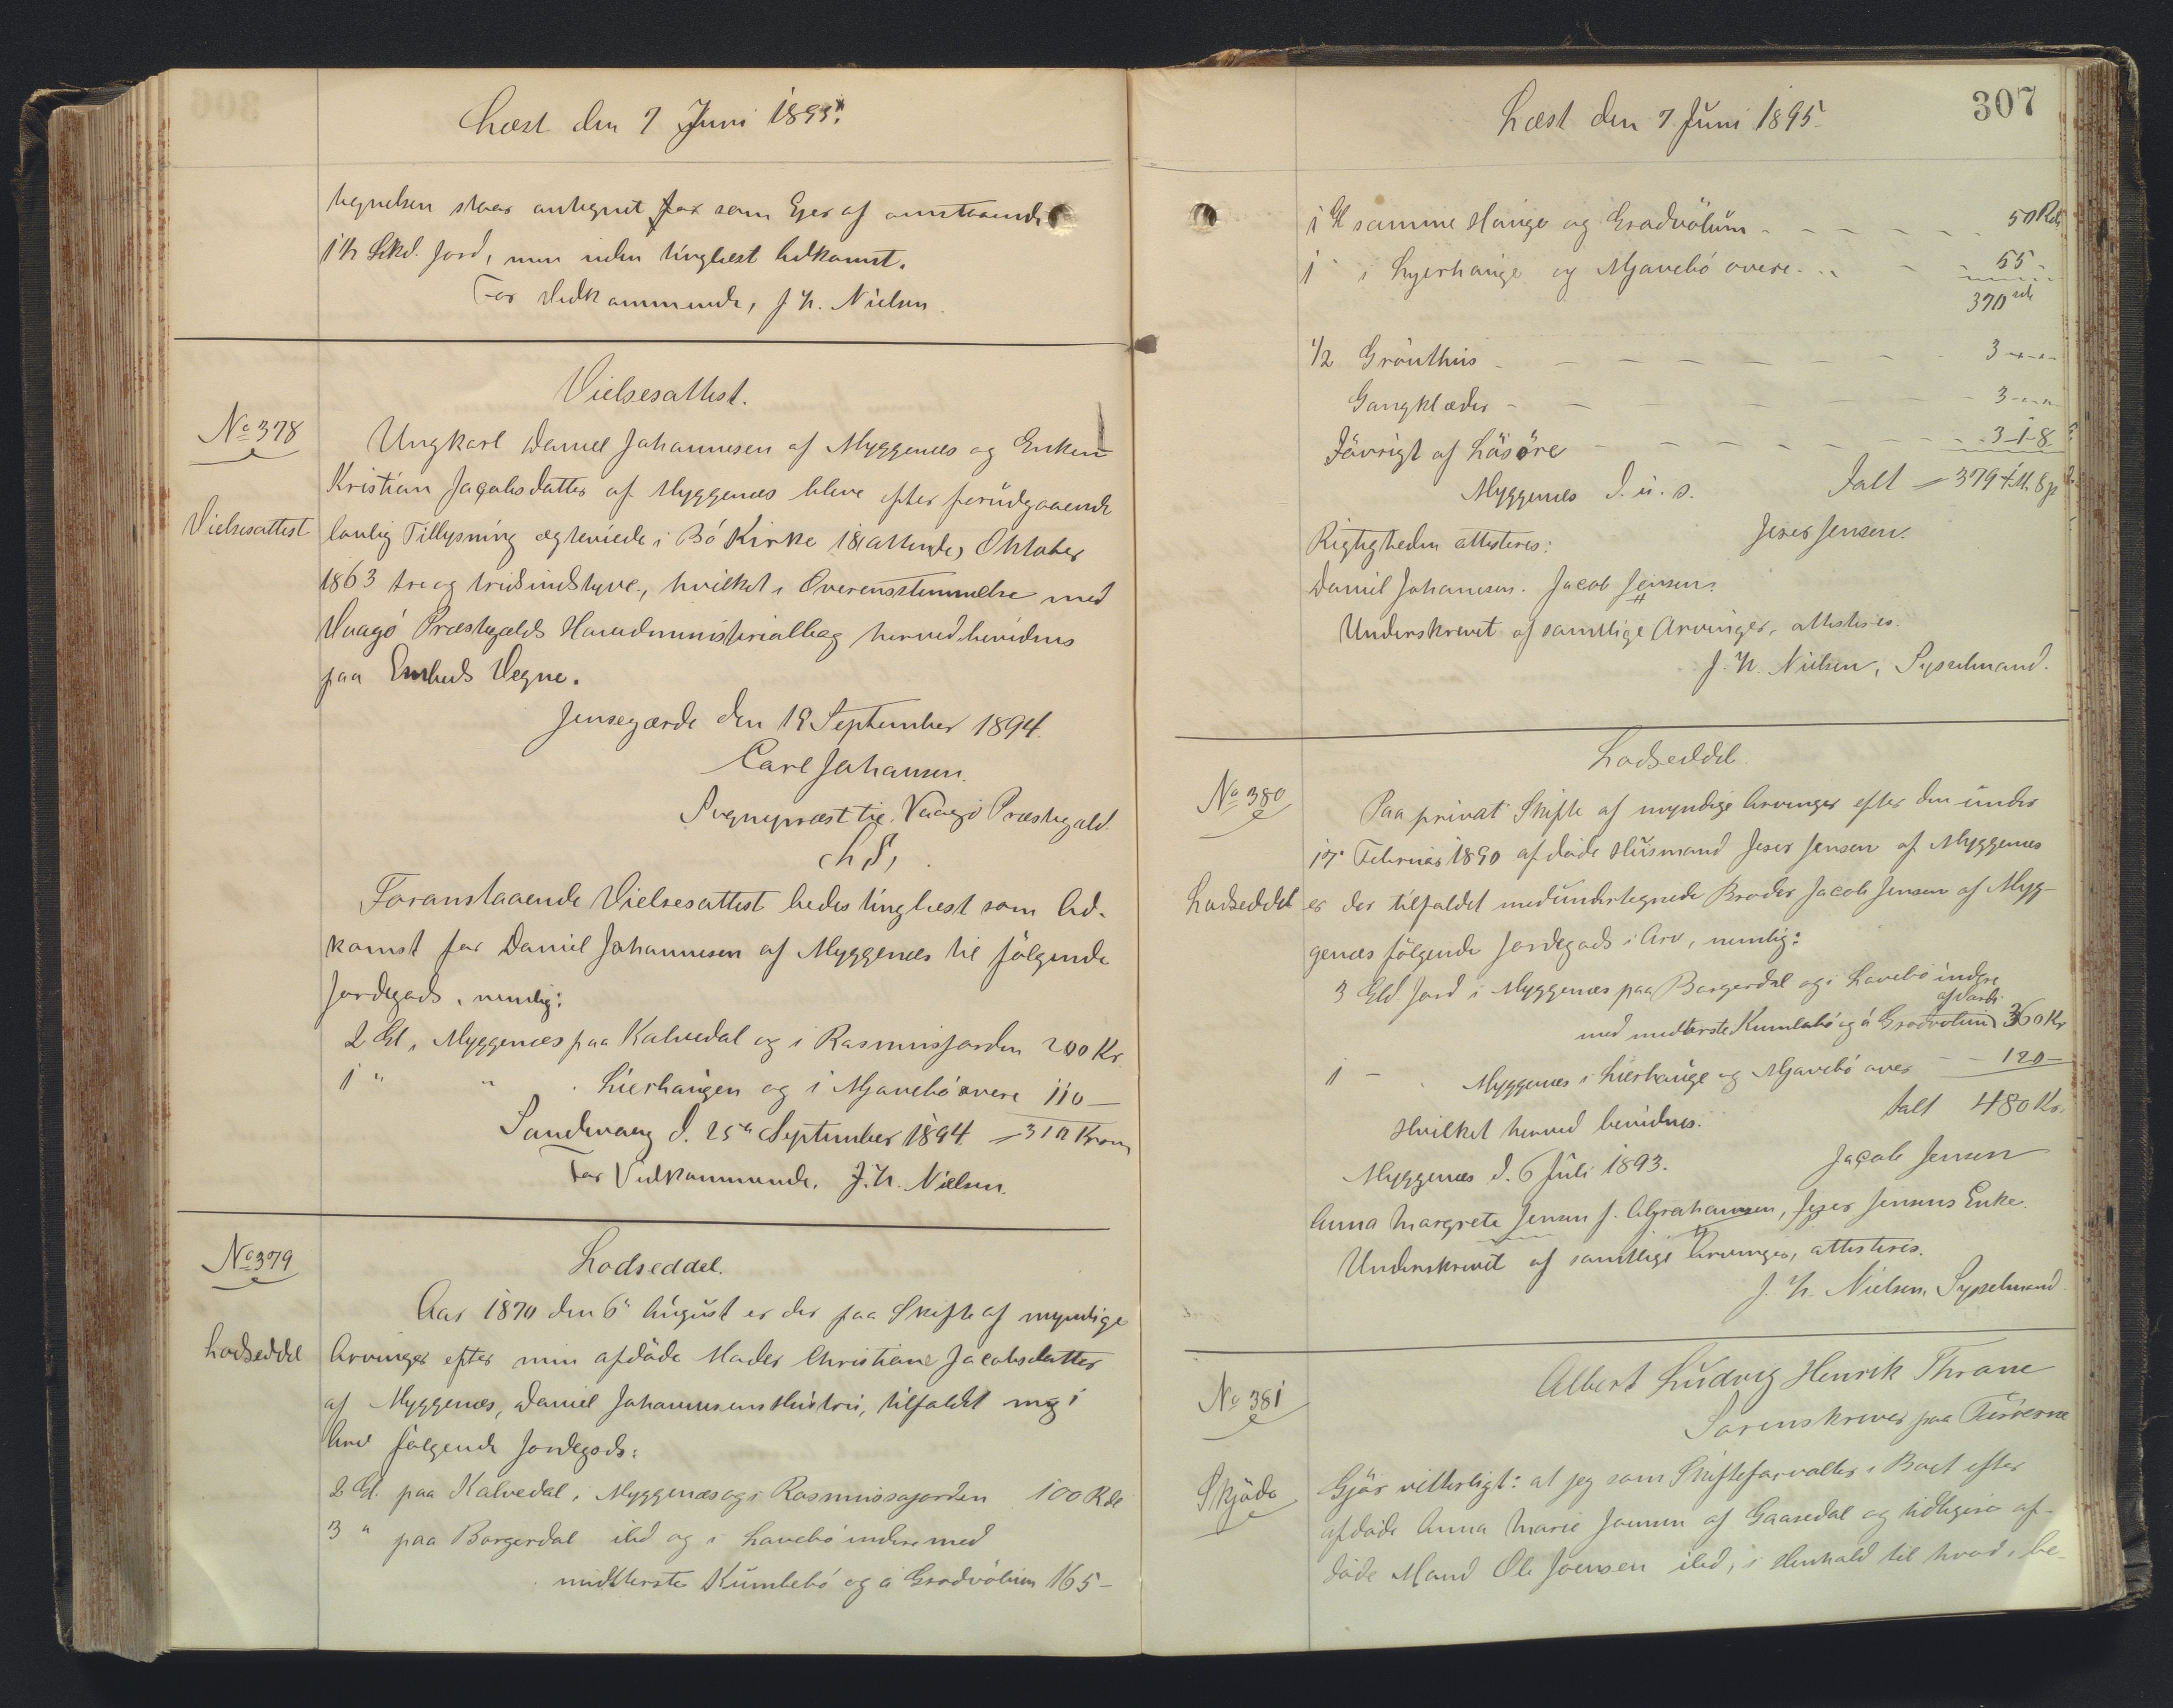 Læst den 7 Juni 1895.
tegnelsen staar antegnet for som Ejer af ommstaaende
1 h Skd. Jord, men uden tinglæst Adkomst.
For Vedkommende, J. H. Nielsen
Vielsesattest.
No 378
Vielsesattest
Ungkarl Daniel Johannesen af Myggenæs og Enken
Kristian Jacobsdatter af Myggenæs bleve efter forudgaaende
lovlig Tillysning ægteviede i Bö Kirke 18 (attende) Oktober
1863 tre og tridsindstyve, hvilket i Overensstemmelse med
Vaagö Præstegjelds Hovedministerialbog herved bevidnes
paa Embeds Vegne.
Jensegærde den 19 September 1894.
Carl Johansen.
Sognepræst til Vaagö Præstegjeld.
L. S.
Foranstaaende Vielsesattest bedes tinglæst som Ad-
komst for Daniel Johannesen af Myggenæs til følgende
Jordegods, nemlig:
2 Gl. i Myggenæs paa Kalvedal og i Rasmusjorden 200 Kr.
1 " " Lierhaugen og i Mjavebö övere 110 —
Sandevaag d. 25 September 1894 = 310 Kroner
For Vedkommende, J. H. Nielsen.
No 379
Lodseddel.
Lodseddel
Aar 1870 den 6 August er der paa Skifte af myndige
Arvinger efter min afdöde Moder Christiane Jacobsdatter
af Myggenæs, Daniel Johannesens Hustru, tilfaldet mig i
Arv fölgende Jordegods:
2 Gl. paa Kalvedal i Myggenæs og i Rasmussajorden 100 Rd
3 " paa Borgerdal ibd og i Lavebö indre med
midtterste Kumlebö og á Gródvölum 165 —
307
Læst den 7 Juni 1895.
1 Gl samme Hauge og Grodvölum 50 Rd
1 " i Lyerhauge og Mjavebö övere 55
370 rd
1/2 Grönthus 3 " "
Gangklæder 3 " "
Iövrigt af Lösöre 3-1-8
Myggenæs d. u. s. Ialt = 379 4 M. 8 p
Rigtigheden attesteres: Jeser Jensen.
Daniel Johanesen. Jacob Jensen.
Underskrevet af samtlige Arvinger, attesteres.
J. H. Nielsen, Sysselmand.
Lodseddel.
No 380
Lodseddel
Paa privat Skifte af myndige Arvinger efter den under
17 Februar 1890 afdöde Husmand Jeser Jensen af Myggenæs
er der tilfaldet medundertegnede Broder Jacob Jensen af Myg-
genæs fölgende Jordegods i Arv, nemlig:
3 Gld. Jord i Myggenæs paa Borgerdal og i Lavebö indre
med midterste Kumlebö og á Grodvolum af Værdi 360 Kr
1 — Myggenæs i Lierhauge og Mjavebö över — 120 —
Ialt 480 Kr.
Hvilket herved bevidnes.
Myggenæs d. 6 Juli 1893. Jacob Jensen
Anna Margreta Jensen f. Abrahamsen, Jeser Jensens Enke.
Underskrevet af samtlige Arvinger, attesteres.
J. H. Nielsen, Sysselmand
No 381
Skjöde
Albert Ludvig Henrik Thrane
Sorenskriver paa Færöerne
Gjör vitterligt: at jeg som Skifteforvalter i Boet efter
afdöde Anna Marie Joensen af Gaasedal og tidligere af-
döde Mand Ole Joensen ibd, i Henhold til hvad, be-